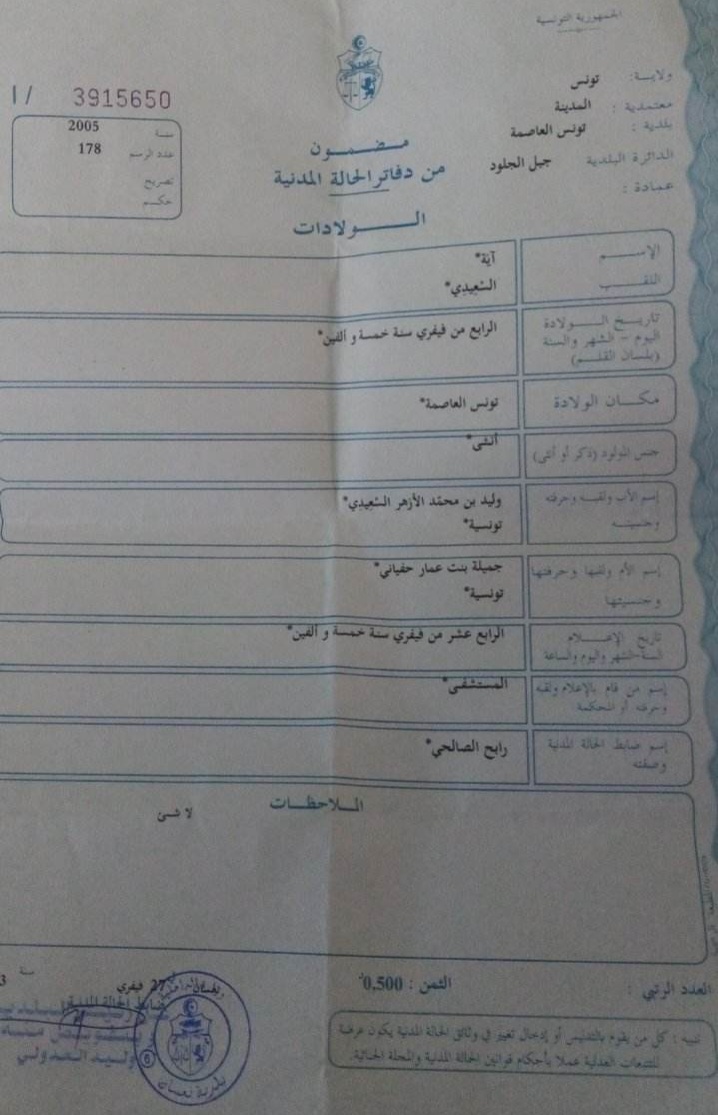 الجمهورية التونسية
ولاية: تونس
معتمدية : المدينة
بلدية : تونس العاصمة
الدائرة البلدية جبل الجلود
عمادة :
3915650 / I
سنة 2005
عدد الرسم 178
تصريح
حكم
مضمون
من دفاتر الحالة المدنية
الولادات
الإسم آية*
اللقب السّعيدي*
تاريخ الولادة
اليوم - الشهر والسنة
(بلسان القلم)
الرابع من فيفري سنة خمسة و ألفين*
مكان الولادة تونس العاصمة*
جنس المولود (ذكر أو أنثى) أنثى*
إسم الأب ولقبه وحرفته وليد بن محمّد الأزهر السّعيدي*
وجنسيته تونسية*
إسم الأم ولقبها وحرفتها جميلة بنت عمار حفياني*
وجنسيتها تونسية*
تاريخ الإعلام
السنة-الشهر واليوم والساعة
الرابع عشر من فيفري سنة خمسة و ألفين*
إسم من قام بالإعلام ولقبه
وحرفته أو المحكمة
المستشفى*
إسم ضابط الحالة المدنية
وصفته
رابح الصالحي*
الملاحظات
لا شئ
العدد الرتبي :
الثمن : 0,500
27 فيفري سنة
ضابط الحالة المدنية
وليد العدولي
تنبيه : كل من يقوم بالتدليس أو إدخال تغيير في وثائق الحالة المدنية يكون عرضة
للتتبعات العدلية عملا بأحكام قوانين الحالة المدنية والمجلة الجنائية.